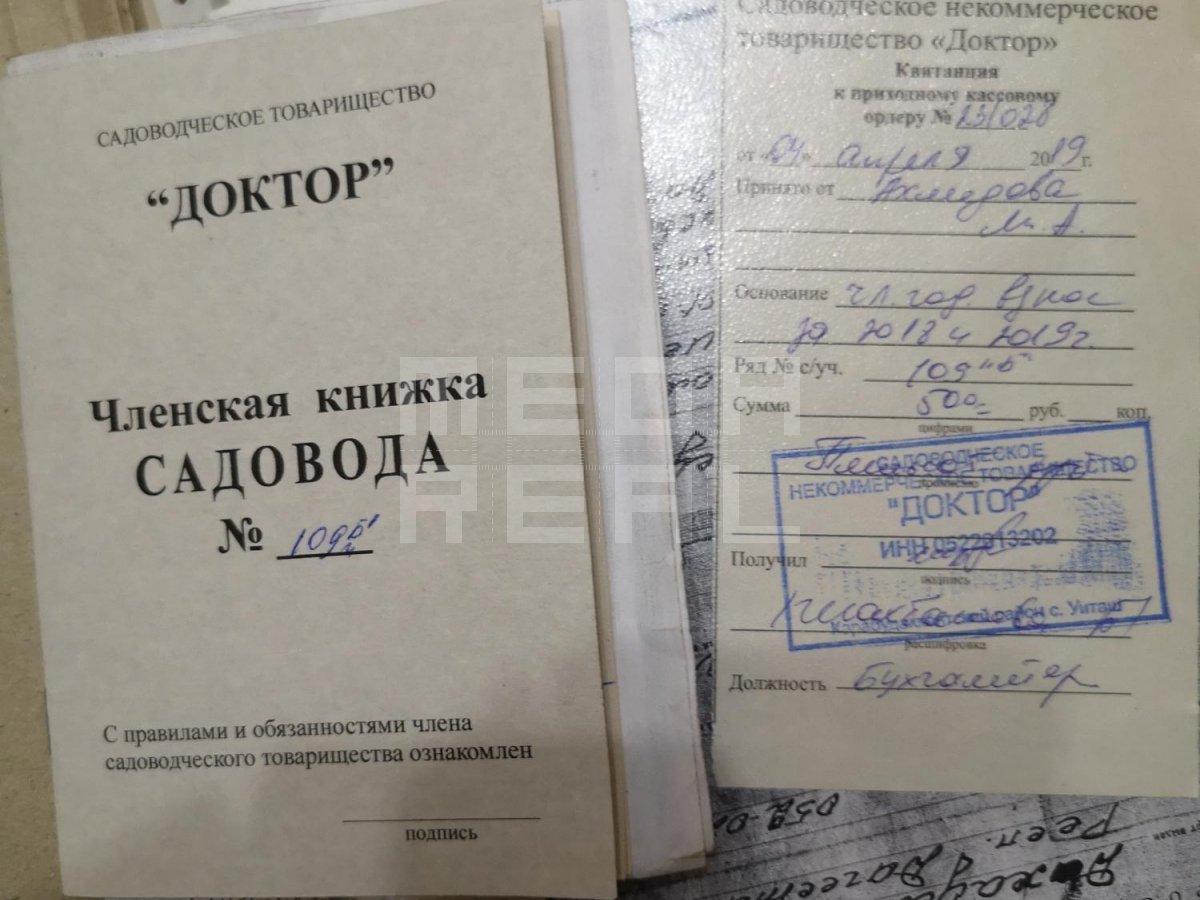 САДОВОДЧЕСКОЕ ТОВАРИЩЕСТВО
“ДОКТОР”
Членская книжка
САДОВОДА
№ 109"Б"
С правилами и обязанностями члена
садоводческого товарищества ознакомлен
подпись
Садоводческое некоммерческое
товарищество «Доктор»
Квитанция
к приходному кассовому
ордеру № 231028
от «04» апреля 2019 г.
Принято от Ахмедова
М. А.
Основание чл. год. взнос
за 2018 и 2019г.
Ряд № с/уч. 109 "Б"
Сумма 500= руб. коп.
цифрами
Пятьсот руб
прописью
САДОВОДЧЕСКОЕ
НЕКОММЕРЧЕСКОЕ ТОВАРИЩЕСТВО
"ДОКТОР"
ИНН 0522013202
Карабудахкентский район с. Уйташ
Получил
подпись
расшифровка
Должность Бухгалтер
052-0
Респ. Дагест
MEGA
REAL